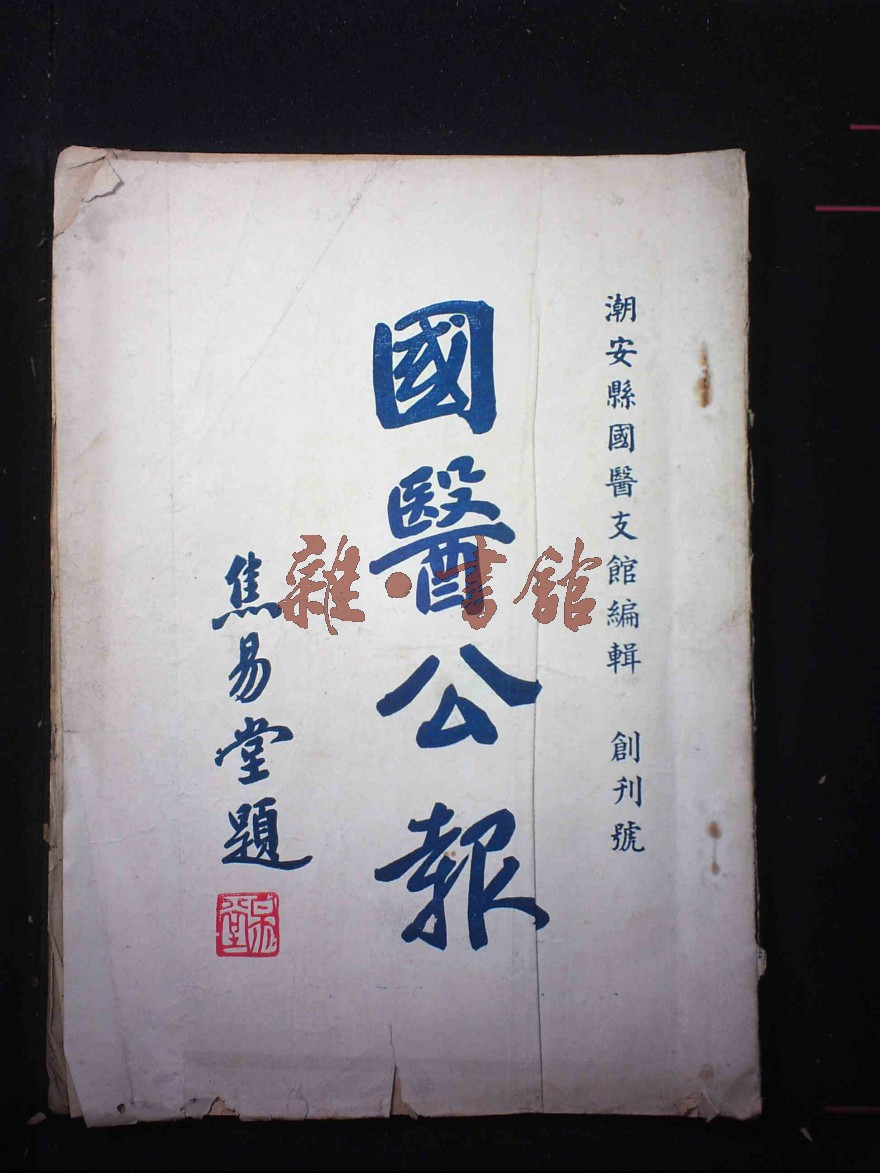 潮安縣國醫支館編輯 創刊號
國醫公報
焦易堂題
雜·書館